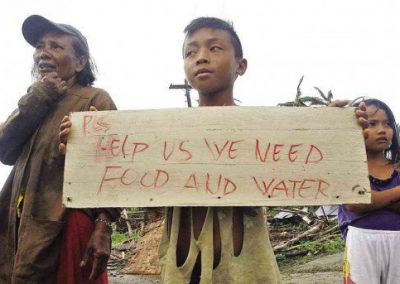 Pls
HELP US WE NEED
FOOD AND WATER